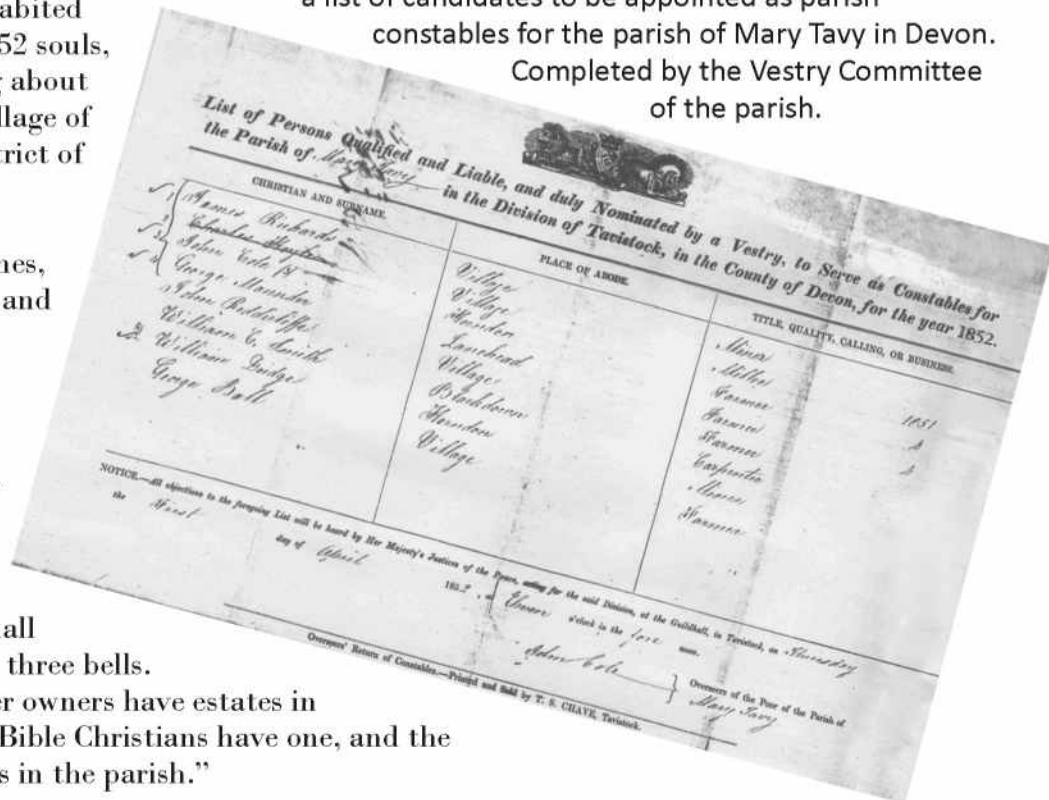 abited
52 souls,
about
llage of
trict of
nes,
and
all
three bells.
er owners have estates in
Bible Christians have one, and the
s in the parish.”
a list of candidates to be appointed as parish
constables for the parish of Mary Tavy in Devon.
Completed by the Vestry Committee
of the parish.
List of Persons Qualified and Liable, and duly Nominated by a Vestry, to Serve as Constables for
the Parish of Mary Tavy in the Division of Tavistock, in the County of Devon, for the year 1852.
CHRISTIAN AND SURNAME. PLACE OF ABODE. TITLE, QUALITY, CALLING, OR BUSINESS.
James Richards Village Miner
Charles Village Miller
John Cole Horndon Farmer 1851
George Maunder Lanehead Farmer
John Village Farmer
William C. Smith Blackdown Carpenter
William Dodge Horndon Miner
George Ball Village Farmer
NOTICE.—All objections to the foregoing List will be heard by Her Majesty's Justices of the Peace, acting for the said Division, at the Guildhall, in Tavistock, on Thursday
the First day of April 1852, at Eleven o'clock in the fore noon.
John Cole } Overseers of the Poor of the Parish of
Mary Tavy
Overseers' Return of Constables.—Printed and Sold by T. S. CHAVE, Tavistock.